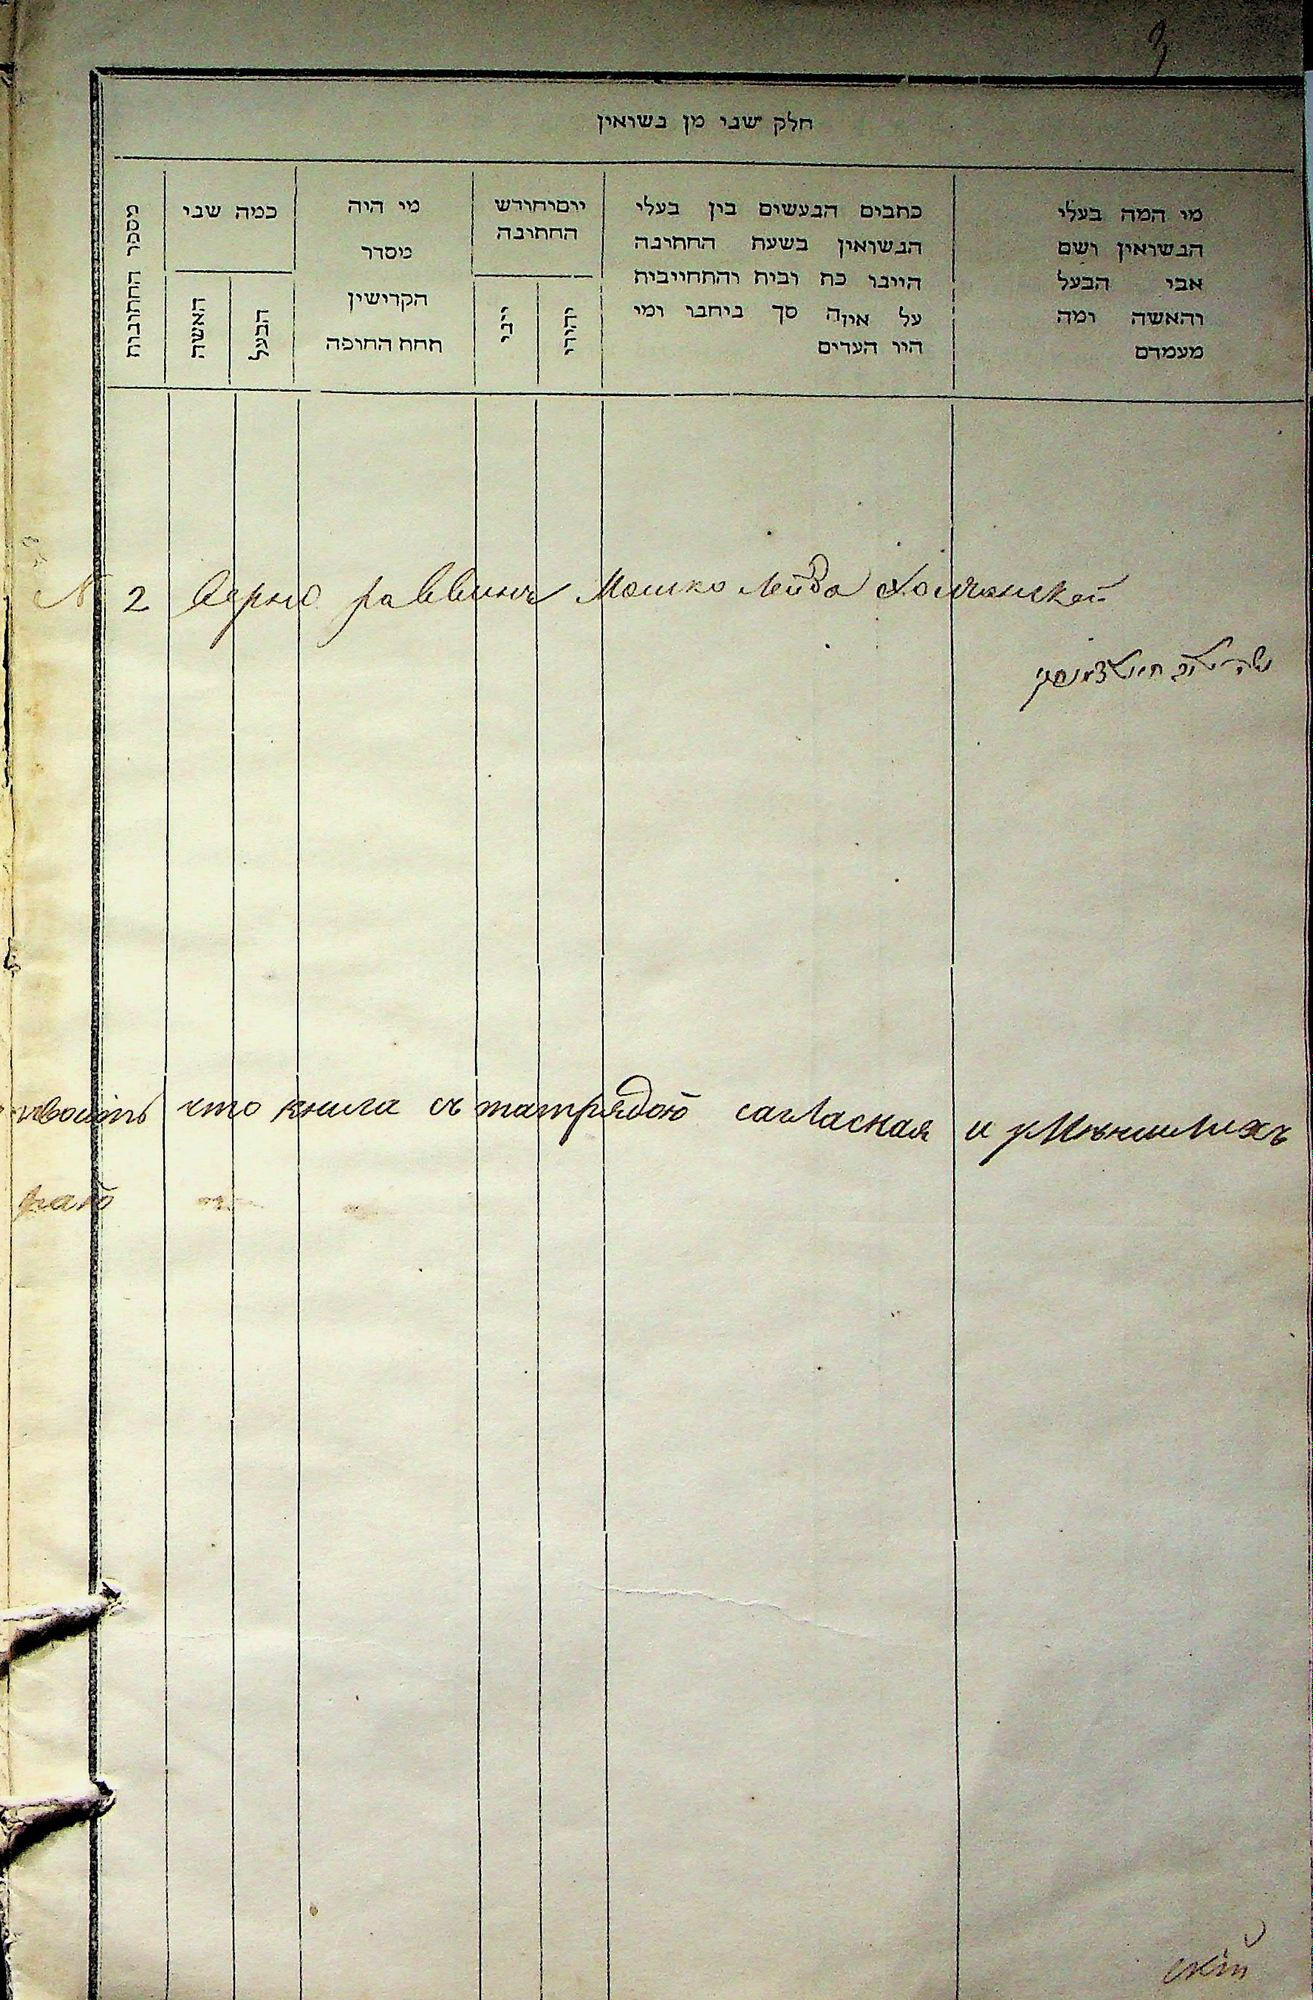 3
חלק שני מן נשואין
מספר החתונות
כמה שני
האשה
הבעל
מי היה
מסדר
הקדישין
תחת החופה
יום וחודש
החתונה
ייני
יהודי
כתבים הנעשים בין בעלי
הנשואין בשעת החתונה
היינו כת וביח והתחייבית
על איזה סך ניתנו ומי
היו העדים
מי המה בעלי
הנשואין ושם
אבי הבעל
והאשה ומה
מעמדם
N 2 Верно раввинъ Мошко Лейба
что книга съ татрядою сагласная и
скій